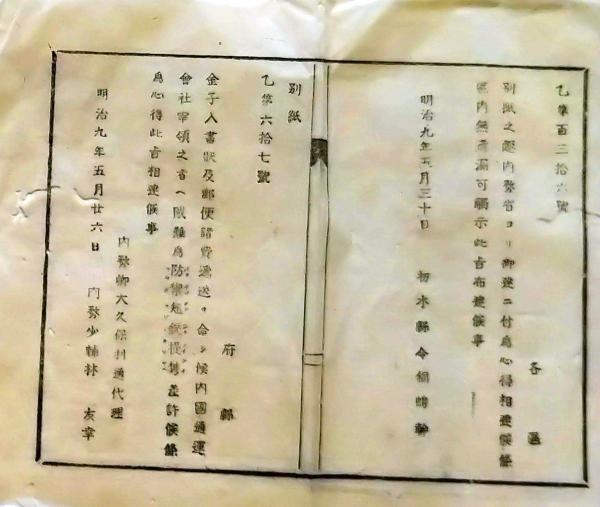 乙第百三拾六號
各區
別紙之趣内務省ヨリ御達ニ付為心得相達候條
區内無遺漏可觸示此旨布達候事
明治九年五月三十日
栃木縣令鍋島幹
別紙
乙第六拾七號
府縣
金子入書狀及郵便諸費遞送ヲ命シ候内國通運
會社宰領之者ヘ賊難為防禦短銃提携差許候條
為心得此旨相達候事
明治九年五月廿六日
内務卿大久保利通代理
内務少輔林友幸